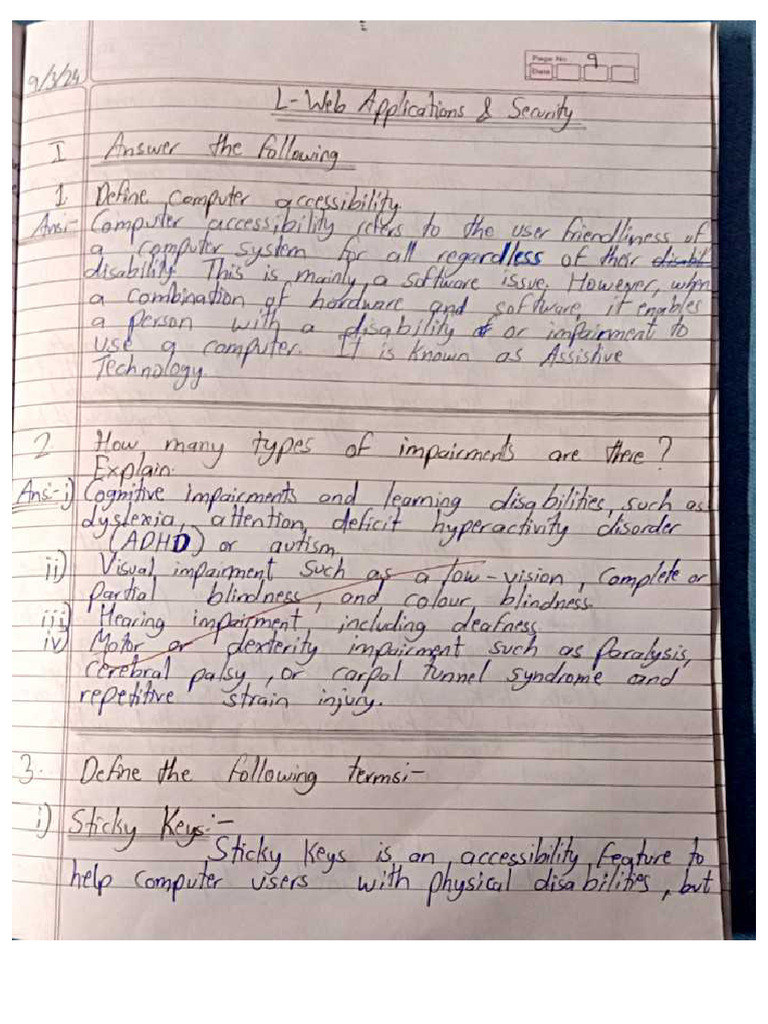 Page No. 9
Date
9/3/24
L-Web Applications & Security
I Answer the following
1. Define Computer accessibility.
Ans:- Computer accessibility refers to the user friendliness of
a computer system for all regardless of their disabl
disability This is mainly a software issue. However, when
a combination of hardware and software, it enables
a person with a disability or or impairment to
use a computer. It is known as Assistive
Technology.
2. How many types of impairments are there?
Explain.
Ans:-i) Cognitive impairments and learning disabilities, such as
dyslexia, attention, deficit hyperactivity disorder
(ADHD) or autism.
ii) Visual impairment such as a low-vision, complete or
partial blindness, and colour blindness.
iii) Hearing impairment, including deafness.
iv) Motor or dexterity impairment such as paralysis,
cerebral palsy, or carpal tunnel syndrome and
repetitive strain injury.
3. Define the following terms:-
i) Sticky Keys:-
Sticky Keys is an accessibility feature to
help computer users with physical disabilities, but